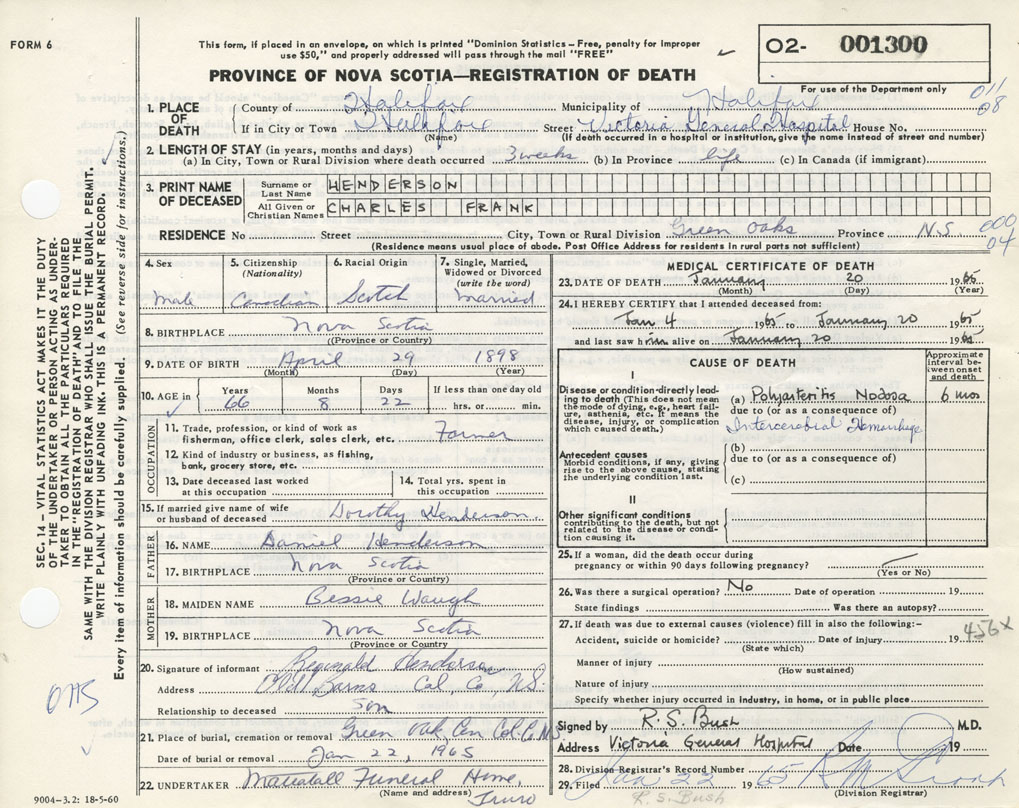 FORM 6
This form, if placed in an envelope, on which is printed "Dominion Statistics – Free, penalty for improper
use $50," and properly addressed will pass through the mail "FREE"
02- 001300
PROVINCE OF NOVA SCOTIA—REGISTRATION OF DEATH
For use of the Department only
011
08
1. PLACE OF DEATH County of Halifax Municipality of Halifax
If in City or Town Halifax (Name) Street Victoria General Hospital House No.
(If death occurred in a hospital or institution, give name instead of street and number)
2. LENGTH OF STAY (in years, months and days)
(a) In City, Town or Rural Division where death occurred 3 weeks (b) In Province life (c) In Canada (if immigrant)
3. PRINT NAME OF DECEASED
Surname or Last Name HENDERSON
All Given or Christian Names CHARLES FRANK
RESIDENCE No Street City, Town or Rural Division Green Oaks Province N.S.
000
04
(Residence means usual place of abode. Post Office Address for residents in rural parts not sufficient)
4. Sex Male
5. Citizenship (Nationality) Canadian
6. Racial Origin Scotch
7. Single, Married, Widowed or Divorced (write the word) Married
8. BIRTHPLACE Nova Scotia
((Province or Country)
9. DATE OF BIRTH April 29 1898
(Month) (Day) (Year)
10. AGE in Years 66 Months 8 Days 22 If less than one day old hrs. or min.
OCCUPATION
11. Trade, profession, or kind of work as fisherman, office clerk, sales clerk, etc. Farmer
12. Kind of industry or business, as fishing, bank, grocery store, etc.
13. Date deceased last worked at this occupation
14. Total yrs. spent in this occupation
15. If married give name of wife or husband of deceased Dorothy Henderson
FATHER
16. NAME Daniel Henderson
17. BIRTHPLACE Nova Scotia
(Province or Country)
MOTHER
18. MAIDEN NAME Bessie Waugh
19. BIRTHPLACE Nova Scotia
(Province or Country
20. Signature of informant Reginald Henderson
Address Old Barns Col. Co, N.S.
Relationship to deceased Son
21. Place of burial, cremation or removal Green Oak Cem Col. Co. N.S.
Date of burial or removal Jan 22, 1965
22. UNDERTAKER Mattatall Funeral Home,
(Name and address) Truro
MEDICAL CERTIFICATE OF DEATH
23. DATE OF DEATH January 20 1965
(Month) (Day) (Year)
24. I HEREBY CERTIFY that I attended deceased from:
Jan 4 1965 to January 20 1965
and last saw him alive on January 20 1965
CAUSE OF DEATH
Approximate interval between onset and death
I
Disease or condition directly leading to death (This does not mean the mode of dying, e.g., heart failure, asthenia, etc. It means the disease, injury, or complication which caused death.)
(a) Polyarteritis Nodosa 6 mos
due to (or as a consequence of)
Intercerebral Hemorrhage
Antecedent causes
Morbid conditions, if any, giving rise to the above cause, stating the underlying condition last.
(b)
due to (or as a consequence of)
(c)
II
Other significant conditions
contributing to the death, but not related to the disease or condition causing it.
25. If a woman, did the death occur during pregnancy or within 90 days following pregnancy?
(Yes or No)
26. Was there a surgical operation? No Date of operation 19
State findings Was there an autopsy?
27. If death was due to external causes (violence) fill in also the following:-
Accident, suicide or homicide? Date of injury 19
(State which)
456X
Manner of injury
(How sustained)
Nature of injury
Specify whether injury occurred in industry, in home, or in public place
Signed by R. S. Bush M.D.
Address Victoria General Hospital Date 19
28. Division Registrar's Record Number
29. Filed Jan 22 1965
(Division Registrar)
R.S. Bush
SEC. 14 – VITAL STATISTICS ACT MAKES IT THE DUTY
OF THE UNDERTAKER OR PERSON ACTING AS UNDER-
TAKER TO OBTAIN ALL THE PARTICULARS REQUIRED
IN THE "REGISTRATION OF DEATH" AND TO FILE THE
SAME WITH THE DIVISION REGISTRAR WHO SHALL ISSUE THE BURIAL PERMIT.
WRITE PLAINLY WITH UNFADING INK. THIS IS A PERMANENT RECORD.
Every item of information should be carefully supplied. (See reverse side for instructions.)
9004-3.2: 18-5-60